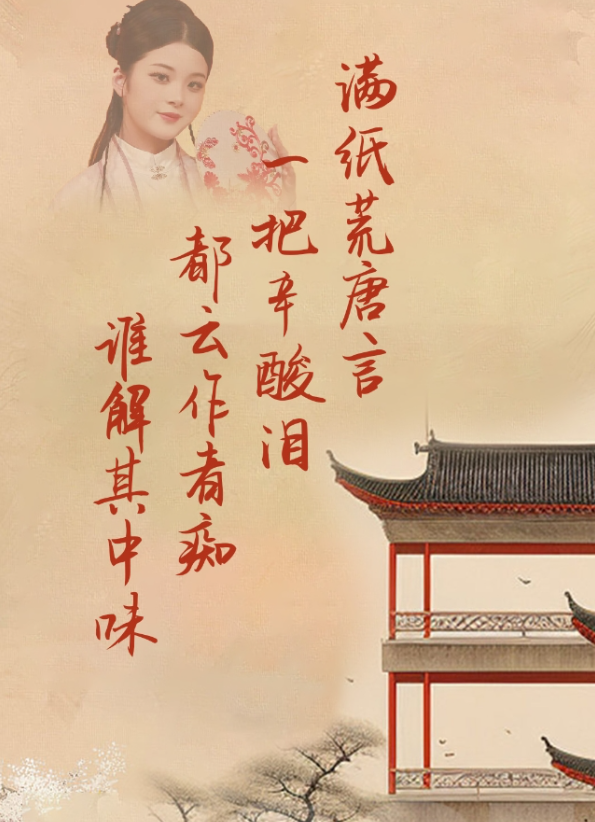 满纸荒唐言
一把辛酸泪
都云乍者痴
谁解其中味